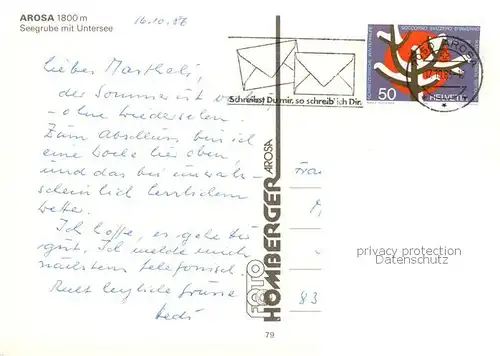 AROSA 1800 m
Seegrube mit Untersee
16.10.86
Lieber Marthali,
der Sommer ist vorbei
- ohne Wiedersehen.
Zum Abschluss bin ich
eine Woche hier oben,
und das bei unwahr-
scheinlich herrlichem
Wetter.
Ich hoffe, es gehe Dir
gut. Ich melde mich
nächstens telefonisch.
Recht herzliche Grüsse
Hedi
Schreibst Du mir, so schreib' ich Dir.
AROSA
50
HELVETIA
FOTO HOMBERGER AROSA
79
Frau
83
privacy protection
Datenschutz